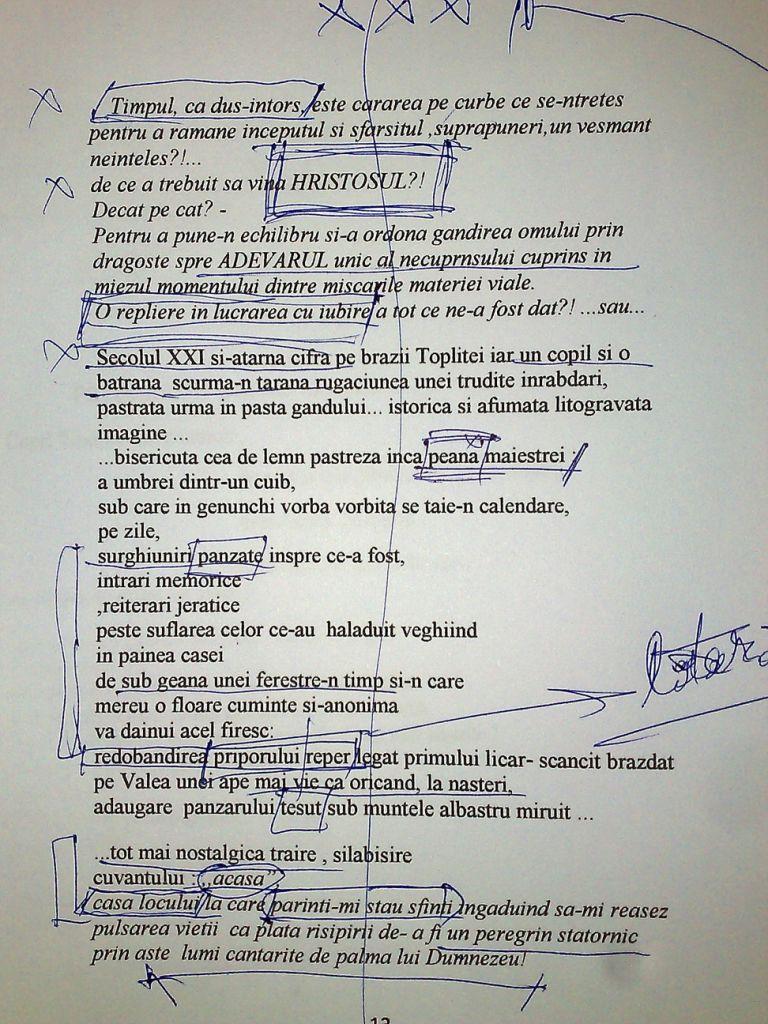 Timpul, ca dus-intors, este cararea pe curbe ce se-ntretes
pentru a ramane inceputul si sfarsitul ,suprapuneri,un vesmant
neinteles?!...
de ce a trebuit sa vina HRISTOSUL?!
Decat pe cat? -
Pentru a pune-n echilibru si-a ordona gandirea omului prin
dragoste spre ADEVARUL unic al necuprnsului cuprins in
miezul momentului dintre miscarile materiei viale.
O repliere in lucrarea cu iubire a tot ce ne-a fost dat?! ...sau...
Secolul XXI si-atarna cifra pe brazii Toplitei iar un copil si o
batrana scurma-n tarana rugaciunea unei trudite inrabdari,
pastrata urma in pasta gandului... istorica si afumata litogravata
imagine ...
...bisericuta cea de lemn pastreza inca peana maiestrei ;
a umbrei dintr-un cuib,
sub care in genunchi vorba vorbita se taie-n calendare,
pe zile,
surghiuniri panzate inspre ce-a fost,
intrari memorice
,reiterari jeratice
peste suflarea celor ce-au haladuit veghiind
in painea casei
de sub geana unei ferestre-n timp si-n care
mereu o floare cuminte si-anonima
va dainui acel firesc:
redobandirea priporului reper legat primului licar- scancit brazdat
pe Valea unei ape mai vie ca oricand, la nasteri,
adaugare panzarului tesut sub muntele albastru miruit ...
...tot mai nostalgica traire , silabisire
cuvantului : ,,acasa”,
casa locului la care parinti-mi stau sfinti ingaduind sa-mi reasez
pulsarea vietii ca plata risipirii de- a fi un peregrin statornic
prin aste lumi cantarite de palma lui Dumnezeu!